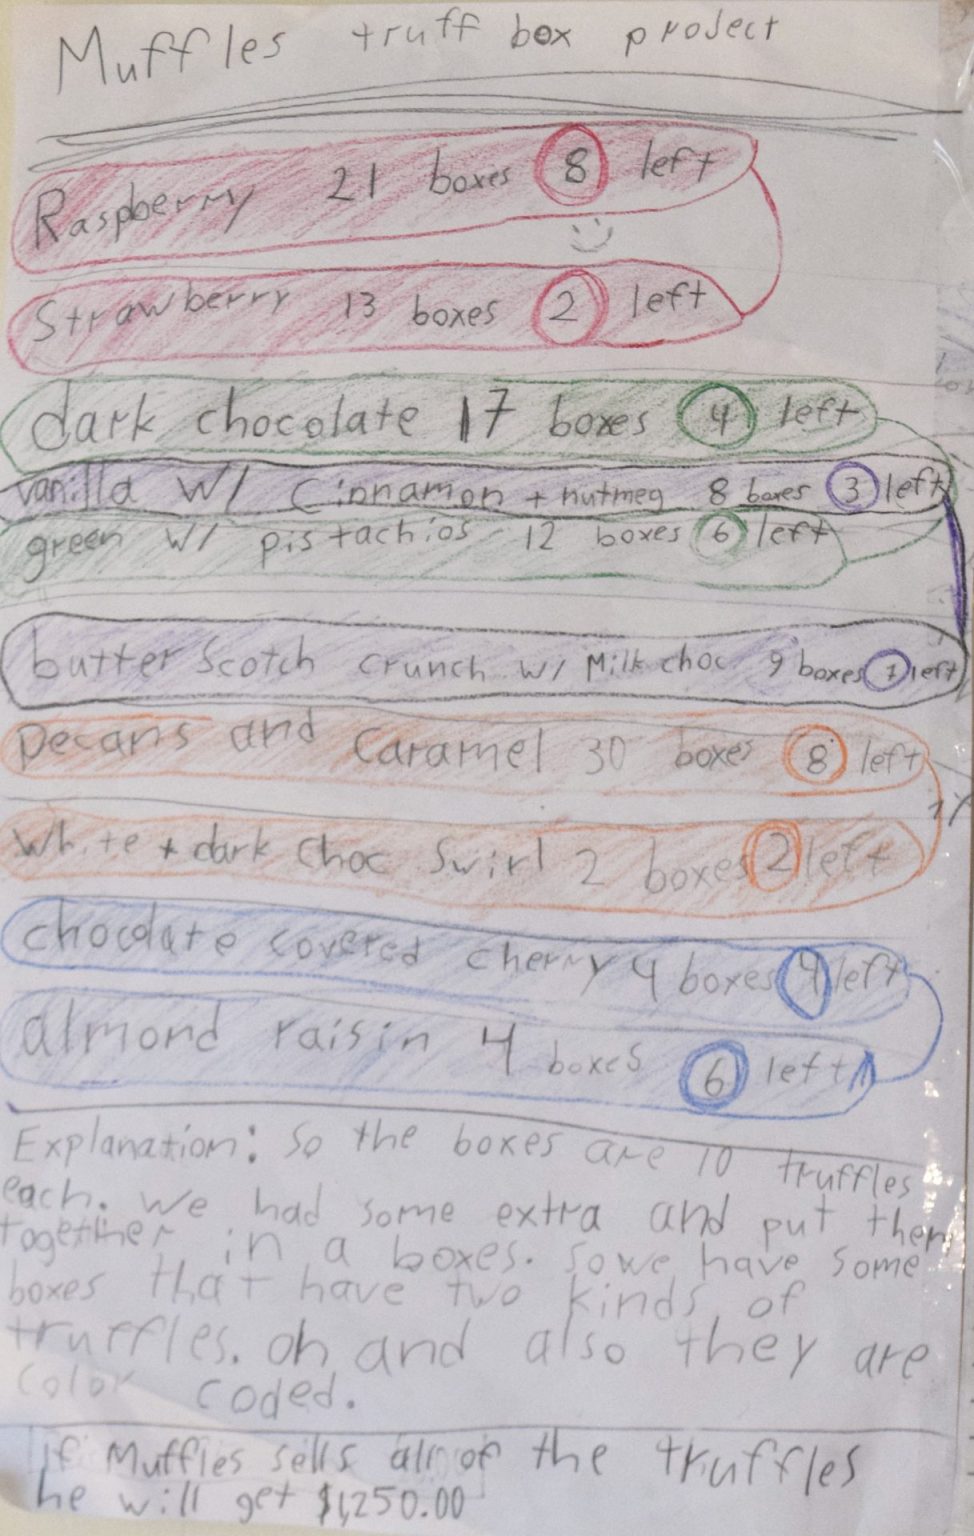 Muffles truff box project
Raspberry 21 boxes 8 left
Strawberry 13 boxes 2 left
dark chocolate 17 boxes 4 left
vanilla w/ Cinnamon + nutmeg 8 boxes 3 left
green w/ pistachios 12 boxes 6 left
butter Scotch crunch w/ Milk choc 9 boxes 7 left
pecans and Caramel 30 boxes 8 left
White + dark Choc Swirl 2 boxes 2 left
chocolate covered cherry 4 boxes 4 left
almond raisin 4 boxes 6 left
Explanation: So the boxes are 10 truffles
each. We had some extra and put them
together in a boxes. so we have some
boxes that have two kinds of
truffles. oh and also they are
color coded.
if Muffles sells all of the truffles
he will get $1,250.00